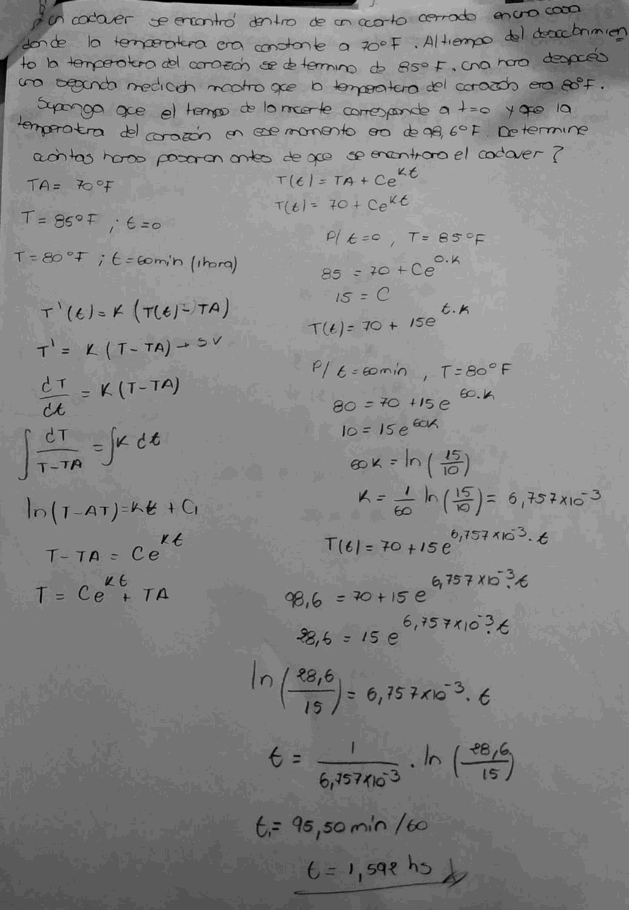 Un cadaver se encontró dentro de un cuarto cerrado en una casa
donde la temperatura era constante a 70°F. Al tiempo del descubrimien
to la temperatura del corazón se determino de 85°F. Una hora después
una segunda medicion mostro que la temperatura del corazón era 80°F.
Suponga que el tiempo de la muerte corresponde a t=0 y que la
temperatura del corazón en ese momento era de 98,6°F Determine
cuántas horas pasaran antes de que se encontrara el cadaver?
TA = 70°F
T = 85°F ; t=0
T = 80°F ; t=60min (1hora)
T'(t) = K (T(t) - TA)
T' = K (T - TA) → SV
dT/dt = K (T - TA)
∫ dT/(T - TA) = ∫ K dt
ln(T-AT) = Kt + C₁
T - TA = Ce^(Kt)
T = Ce^(Kt) + TA
T(t) = TA + Ce^(Kt)
T(t) = 70 + Ce^(Kt)
P/ t=0 , T = 85°F
85 = 70 + Ce^(0.K)
15 = C
T(t) = 70 + 15e^(t.K)
P/ t=60min , T=80°F
80 = 70 + 15e^(60.K)
10 = 15e^(60K)
60K = ln(15/10)
K = 1/60 ln(15/10) = 6,757x10^-3
T(t) = 70 + 15e^(6,757x10^-3 . t)
98,6 = 70 + 15e^(6,757x10^-3 . t)
28,6 = 15e^(6,757x10^-3 . t)
ln(28,6/15) = 6,757x10^-3 . t
t = 1/(6,757x10^-3) . ln(28,6/15)
t₁ = 95,50 min /60
t = 1,592 hs